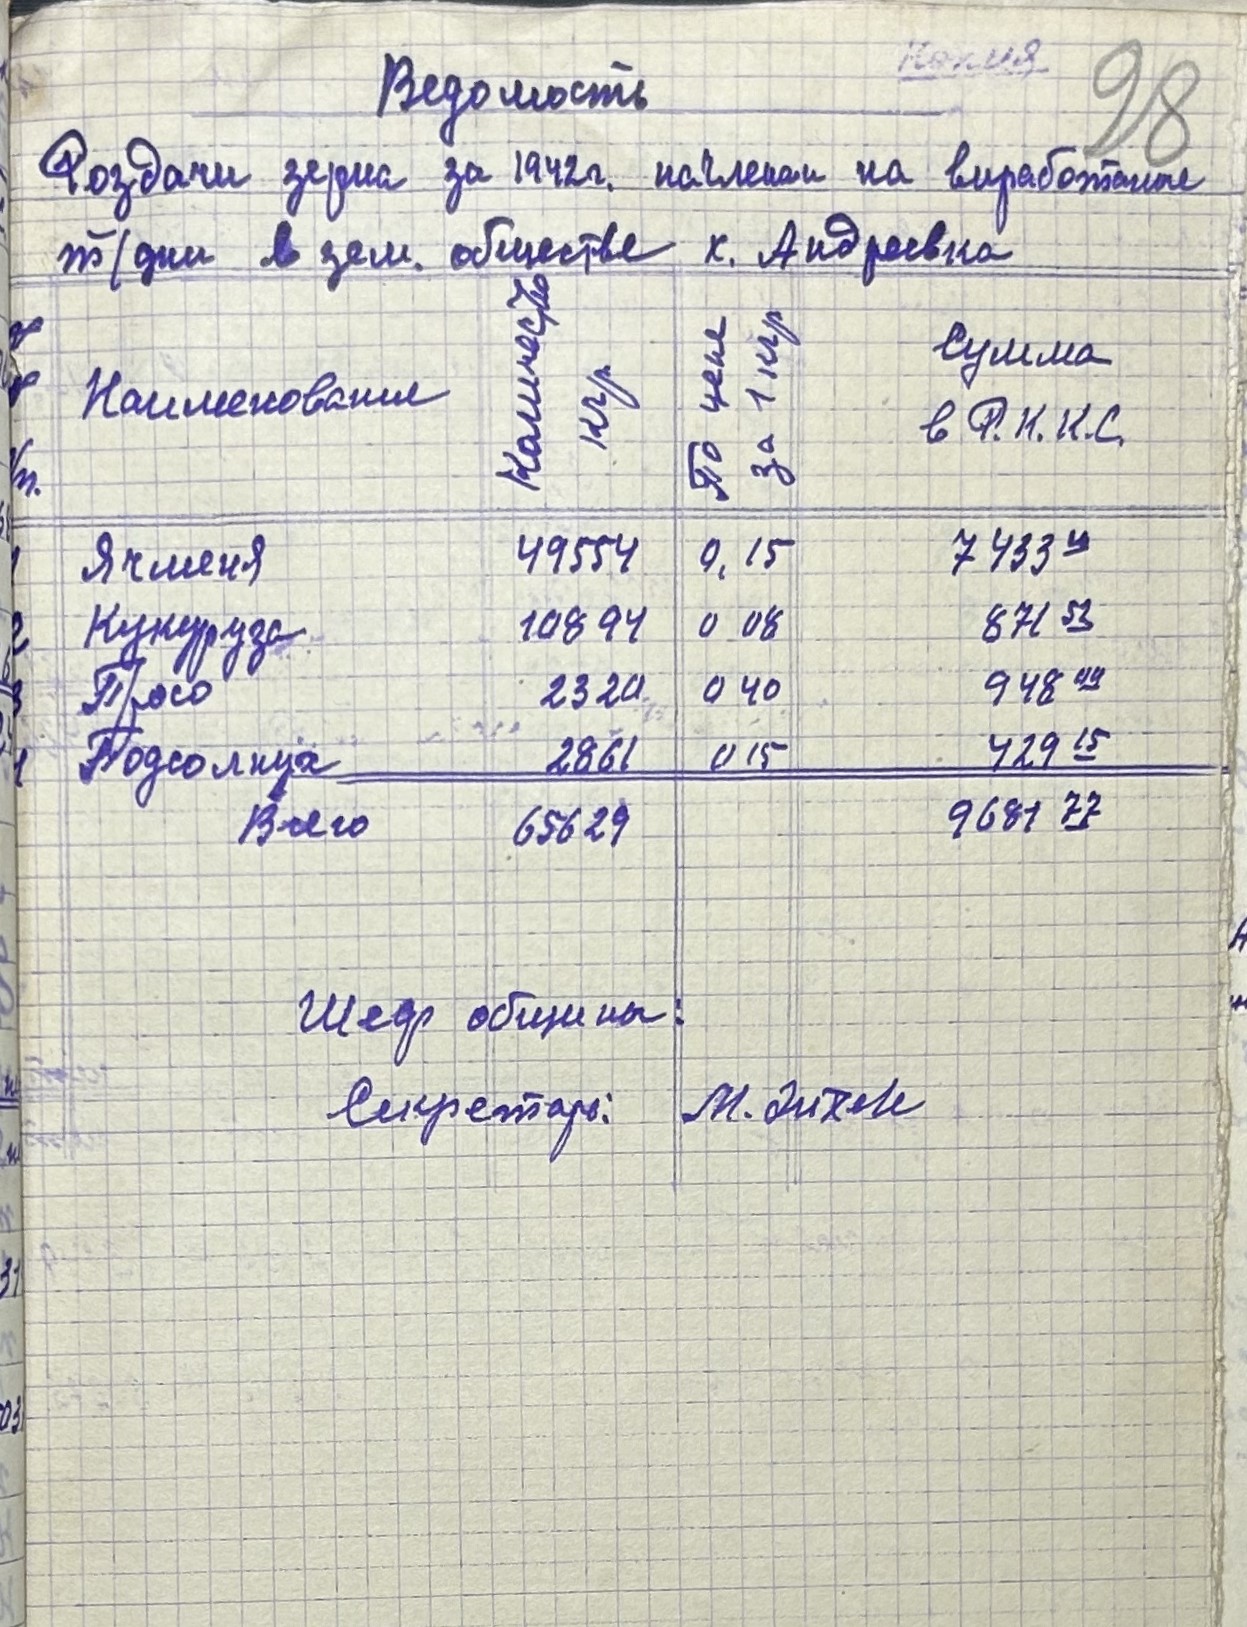 Копия
98
Ведомость
Роздачи зерна за 1942г. начленам на виработаные
т/дни в зем. обществе х. Андреевка
Наименования
Количество кгр
По цене за 1 кгр
Сумма
в Р.К.К.С.
1 Ячменя 49554 0,15 7433
2 Кукуруза 10894 0 08 871 53
3 Просо 2320 0 40 948
Подсолнух 2861 0 15 429 15
Всего 65629 9681 77
Шеф общины:
Секретарь: М.